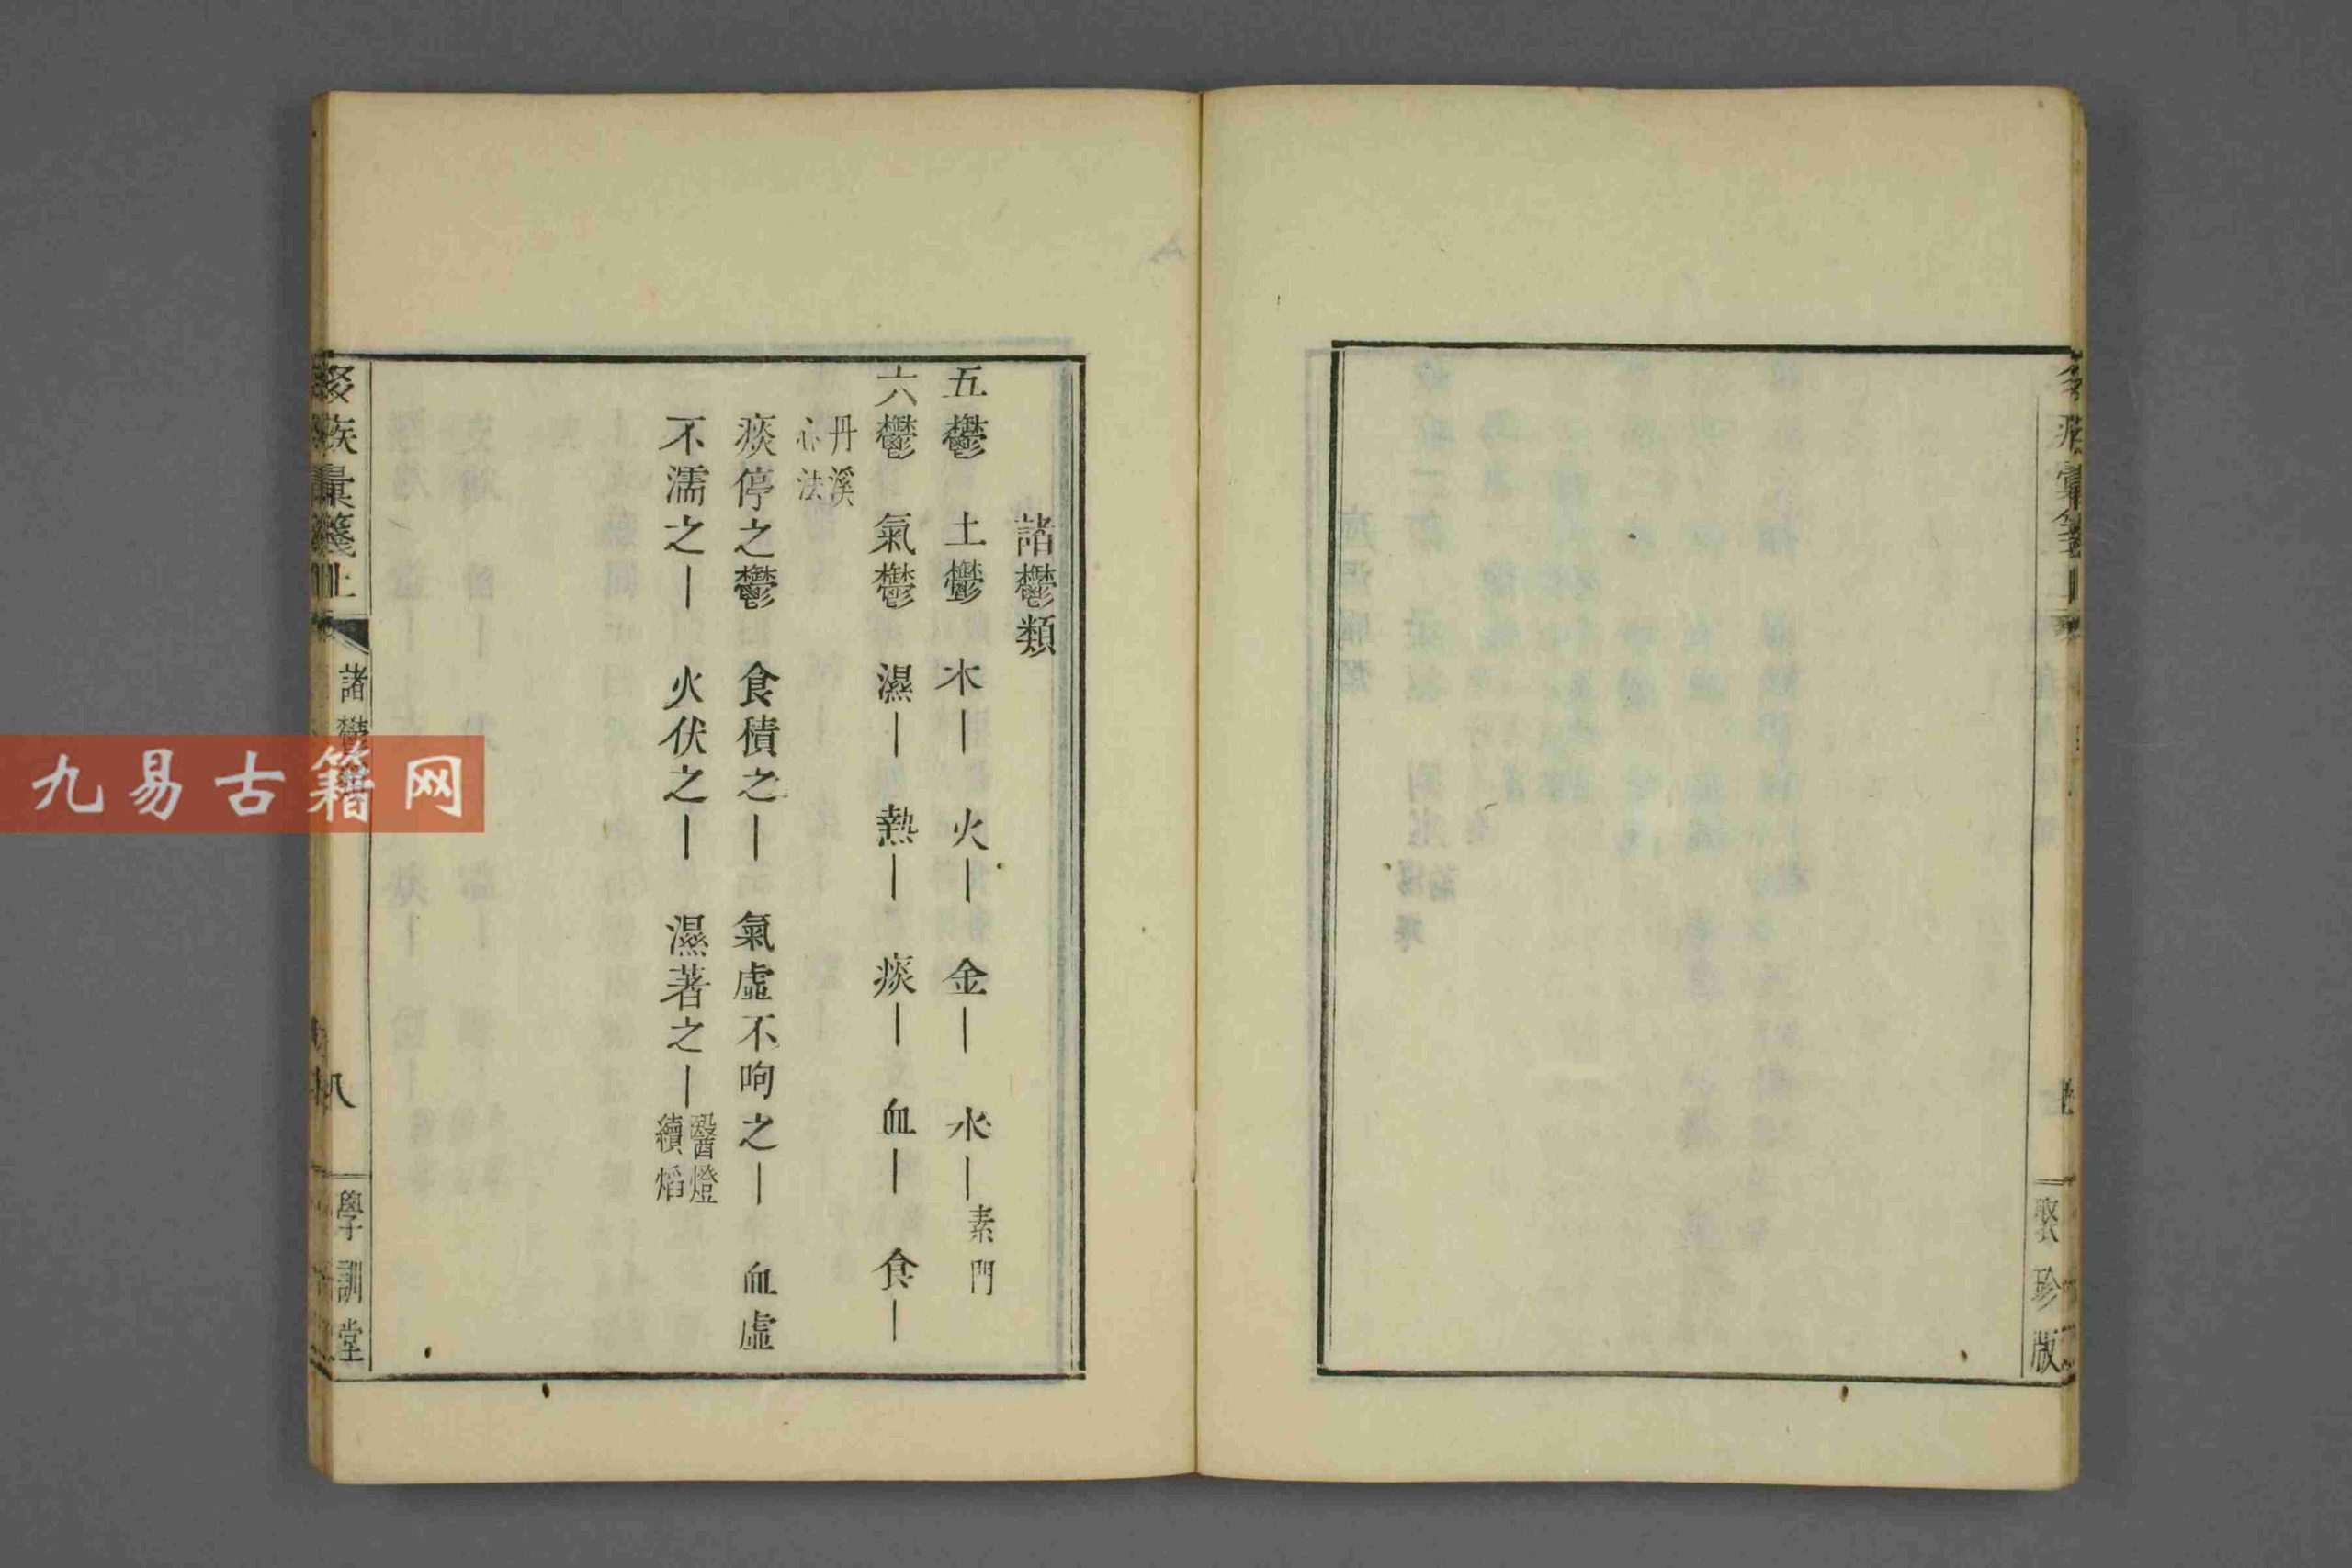 聚珍版
諸鬱類
五鬱 土鬱 木｜ 火｜ 金｜ 水｜ 素門
六鬱 氣鬱 濕｜ 熱｜ 痰｜ 血｜ 食｜
丹溪
心法
痰停之鬱 食積之｜ 氣虛不呴之｜ 血虛
不濡之｜ 火伏之｜ 濕著之｜ 醫燈
續焰
彙箋上
諸鬱
八
學訓堂
九易古籍网